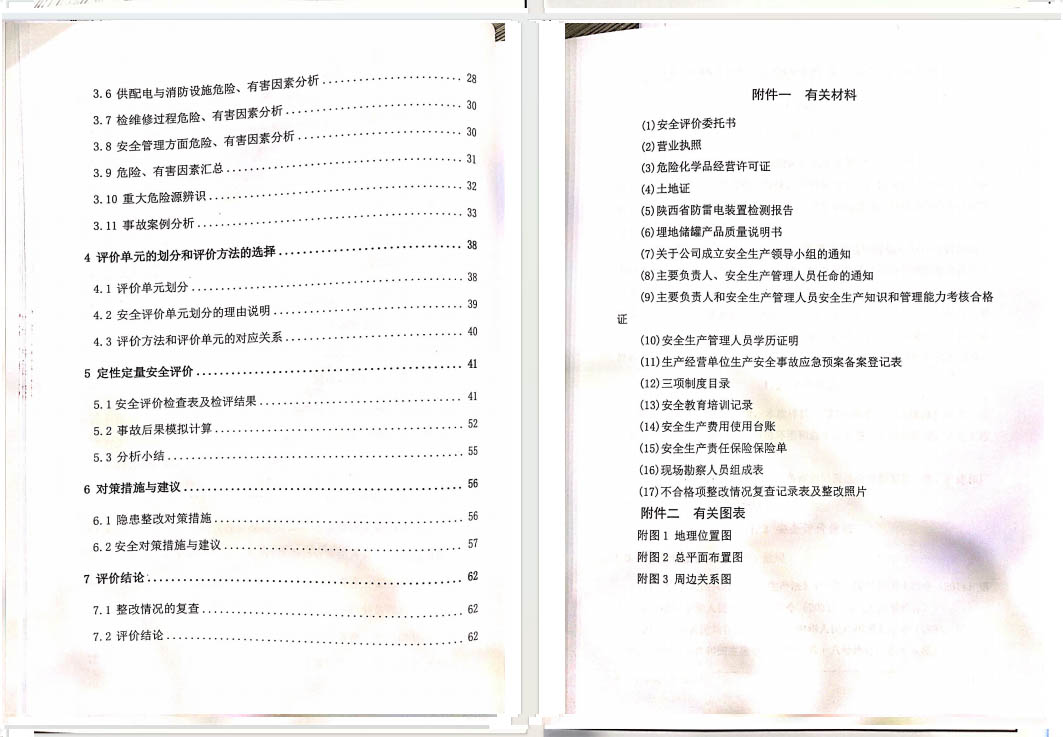 3.6 供配电与消防设施危险、有害因素分析 28
3.7 检维修过程危险、有害因素分析 30
3.8 安全管理方面危险、有害因素分析 30
3.9 危险、有害因素汇总 31
3.10 重大危险源辨识 32
3.11 事故案例分析 33
4 评价单元的划分和评价方法的选择 38
4.1 评价单元划分 38
4.2 安全评价单元划分的理由说明 39
4.3 评价方法和评价单元的对应关系 40
5 定性定量安全评价 41
5.1 安全评价检查表及检评结果 41
5.2 事故后果模拟计算 52
5.3 分析小结 55
6 对策措施与建议 56
6.1 隐患整改对策措施 56
6.2 安全对策措施与建议 57
7 评价结论 62
7.1 整改情况的复查 62
7.2 评价结论 62
附件一 有关材料
(1)安全评价委托书
(2)营业执照
(3)危险化学品经营许可证
(4)土地证
(5)陕西省防雷电装置检测报告
(6)埋地储罐产品质量说明书
(7)关于公司成立安全生产领导小组的通知
(8)主要负责人、安全生产管理人员任命的通知
(9)主要负责人和安全生产管理人员安全生产知识和管理能力考核合格
证
(10)安全生产管理人员学历证明
(11)生产经营单位生产安全事故应急预案备案登记表
(12)三项制度目录
(13)安全教育培训记录
(14)安全生产费用使用台账
(15)安全生产责任保险保险单
(16)现场勘察人员组成表
(17)不合格项整改情况复查记录表及整改照片
附件二 有关图表
附图1 地理位置图
附图2 总平面布置图
附图3 周边关系图